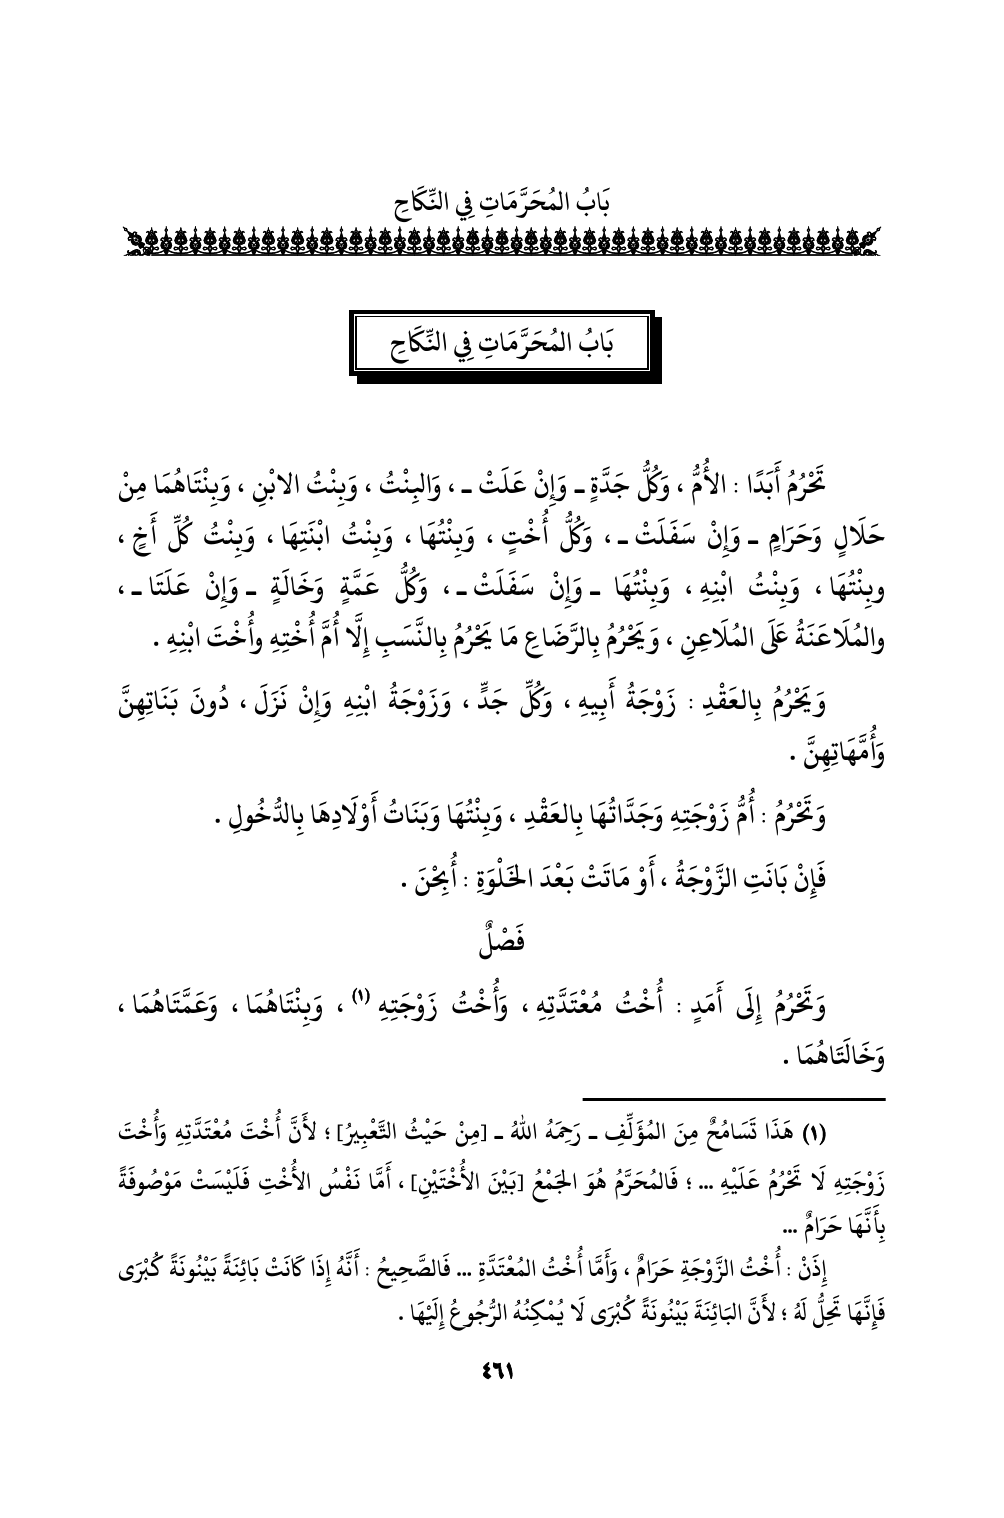 بَابُ المُحَرَّمَاتِ فِي النِّكَاحِ
بَابُ المُحَرَّمَاتِ فِي النِّكَاحِ
تَحْرُمُ أَبَدًا : الأُمُّ ، وَكُلُّ جَدَّةٍ ـ وَإِنْ عَلَتْ ـ ، وَالبِنْتُ ، وَبِنْتُ الابْنِ ، وَبِنْتَاهُمَا مِنْ
حَلَالٍ وَحَرَامٍ ـ وَإِنْ سَفَلَتْ ـ ، وَكُلُّ أُخْتٍ ، وَبِنْتُهَا ، وَبِنْتُ ابْنَتِهَا ، وَبِنْتُ كُلِّ أَخٍ ،
وبِنْتُهَا ، وَبِنْتُ ابْنِهِ ، وَبِنْتُهَا ـ وَإِنْ سَفَلَتْ ـ ، وَكُلُّ عَمَّةٍ وَخَالَةٍ ـ وَإِنْ عَلَتَا ـ ،
والمُلَاعَنَةُ عَلَى المُلَاعِنِ ، وَيَحْرُمُ بِالرَّضَاعِ مَا يَحْرُمُ بِالنَّسَبِ إِلَّا أُمَّ أُخْتِهِ وأُخْتَ ابْنِهِ .
وَيَحْرُمُ بِالعَقْدِ : زَوْجَةُ أَبِيهِ ، وَكُلِّ جَدٍّ ، وَزَوْجَةُ ابْنِهِ وَإِنْ نَزَلَ ، دُونَ بَنَاتِهِنَّ
وَأُمَّهَاتِهِنَّ .
وَتَحْرُمُ : أُمُّ زَوْجَتِهِ وَجَدَّاتُهَا بِالعَقْدِ ، وَبِنْتُهَا وَبَنَاتُ أَوْلَادِهَا بِالدُّخُولِ .
فَإِنْ بَانَتِ الزَّوْجَةُ ، أَوْ مَاتَتْ بَعْدَ الخَلْوَةِ : أُبِحْنَ .
فَصْلٌ
وَتَحْرُمُ إِلَى أَمَدٍ : أُخْتُ مُعْتَدَّتِهِ ، وَأُخْتُ زَوْجَتِهِ (١) ، وَبِنْتَاهُمَا ، وَعَمَّتَاهُمَا ،
وَخَالَتَاهُمَا .
(١) هَذَا تَسَامُحٌ مِنَ المُؤَلِّفِ ـ رَحِمَهُ اللهُ ـ [مِنْ حَيْثُ التَّعْبِيرُ] ؛ لأَنَّ أُخْتَ مُعْتَدَّتِهِ وَأُخْتَ
زَوْجَتِهِ لَا تَحْرُمُ عَلَيْهِ ... ؛ فَالمُحَرَّمُ هُوَ الجَمْعُ [بَيْنَ الأُخْتَيْنِ] ، أَمَّا نَفْسُ الأُخْتِ فَلَيْسَتْ مَوْصُوفَةً
بِأَنَّهَا حَرَامٌ ...
إِذَنْ : أُخْتُ الزَّوْجَةِ حَرَامٌ ، وَأَمَّا أُخْتُ المُعْتَدَّةِ ... فَالصَّحِيحُ : أَنَّهُ إِذَا كَانَتْ بَائِنَةً بَيْنُونَةً كُبْرَى
فَإِنَّهَا تَحِلُّ لَهُ ؛ لأَنَّ البَائِنَةَ بَيْنُونَةً كُبْرَى لَا يُمْكِنُهُ الرُّجُوعُ إِلَيْهَا .
٤٦١